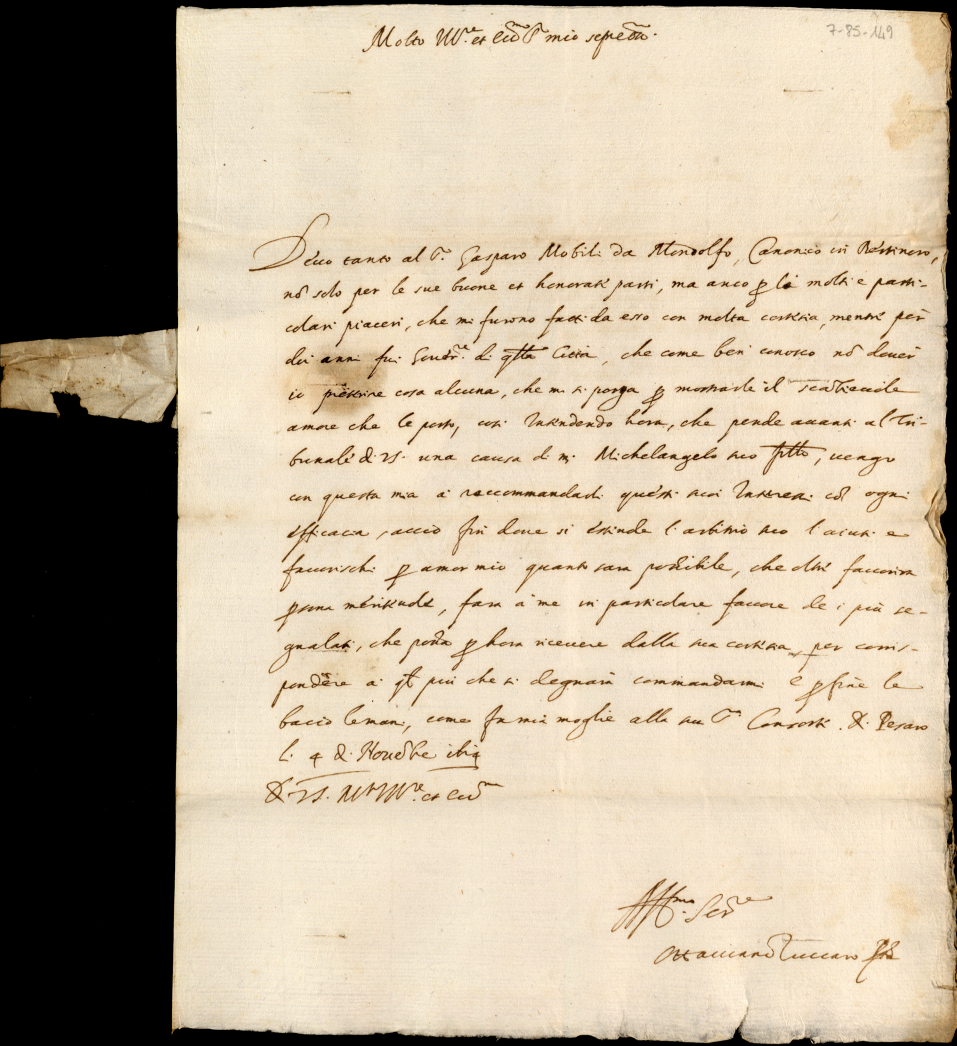 7-85-149
Molto Ill.re et Ecc.mo S.r mio
Devo tanto al S.r Gasparo Mobili da Mondolfo, Canonico in
nō solo per le sue buone et honorate parti, ma anco p le molti e parti-
colari piaceri, che mi furono fatti da esso con molta cortesia, mentre per
doi anni fui Gov.re di q.tta Città, che come ben conosco nō dover
io cosa alcuna, che mi si porga p mostrarle il
amore che le porto, così intendendo hora, che pende avanti al Tri-
bunale di VS. una causa di m. Michelangelo suo fr̃llo, vengo
con questa mia à raccommandarli questi suoi interessi cō ogni
efficacia, acciò fin dove si estende l'arbitrio suo l'aiuti e
favorischi p amor mio quanto sara possibile, che oltre favorira
psona meritevole, fara à me in particolare favore de i più se-
gnalati, che possa p hora ricevere dalla sua cortesia, per corris-
pondere à q.to più che si degnarà commandarmi e p fine le
bacio le mani, come fa mia moglie alla sua S.ra Consorte. Di Pesaro
li 4 di Novēbre
Di VS. M.to Ill.re et Ecc.ma
Aff.mo Ser.re
Ottaviano Zuccaro